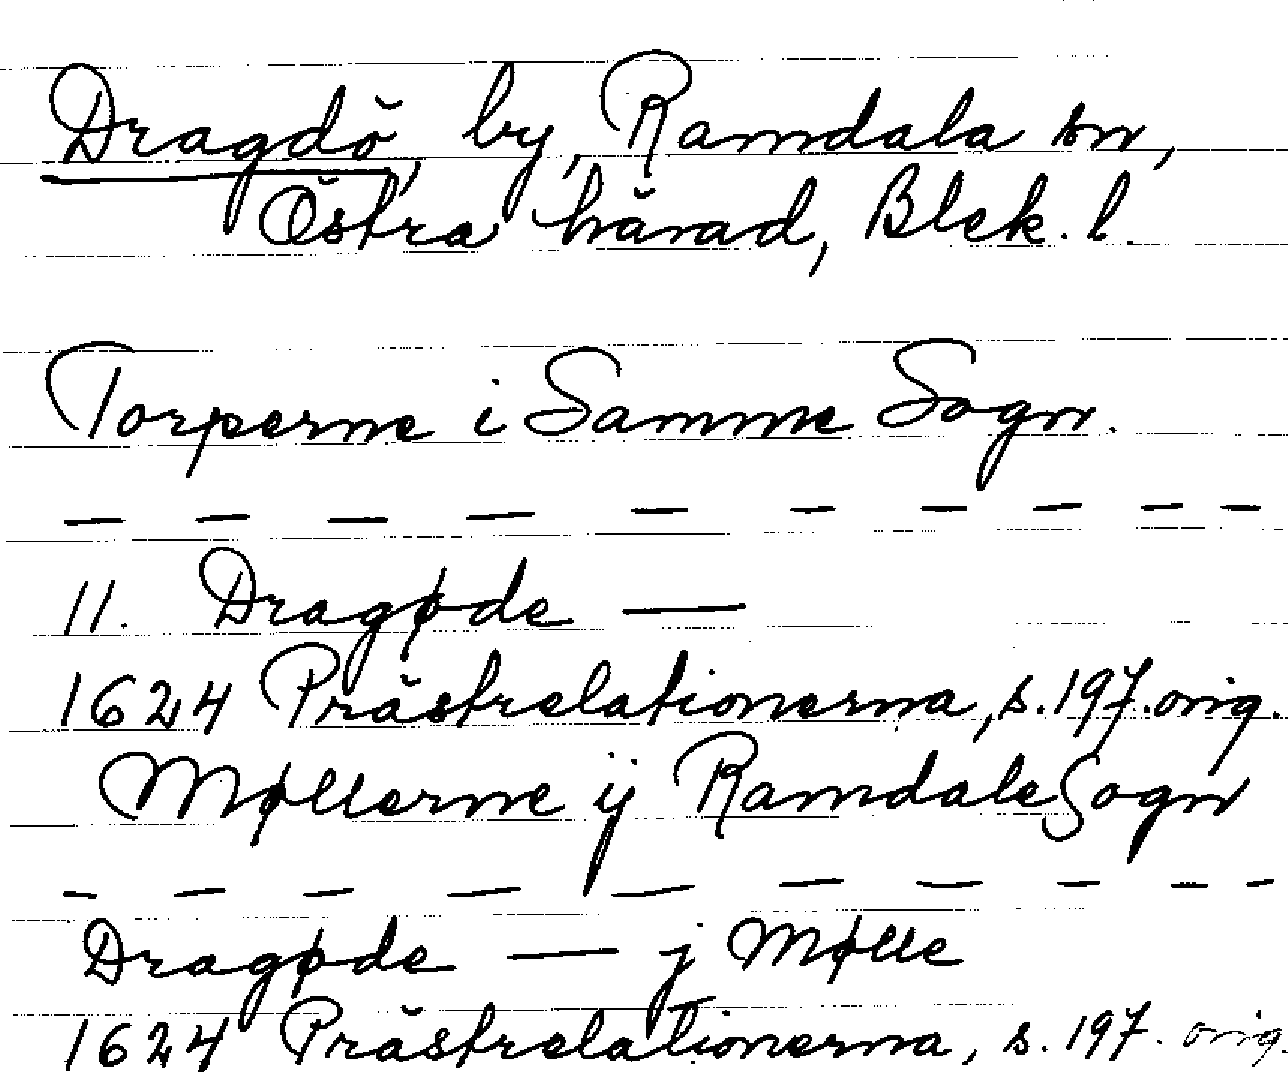 Dragdö, by, Ramdala sn,
Östra härad, Blek. l.
Torperne i Samme Sogn.
— — — — — — — — — —
11. Dragøde —
1624 Prästrelationerna, s. 197. orig.
Møllerne ij Ramdale Sogn
— — — — — — — — — —
Dragøde — j Mølle
1624 Prästrelationerna, s. 197. orig.